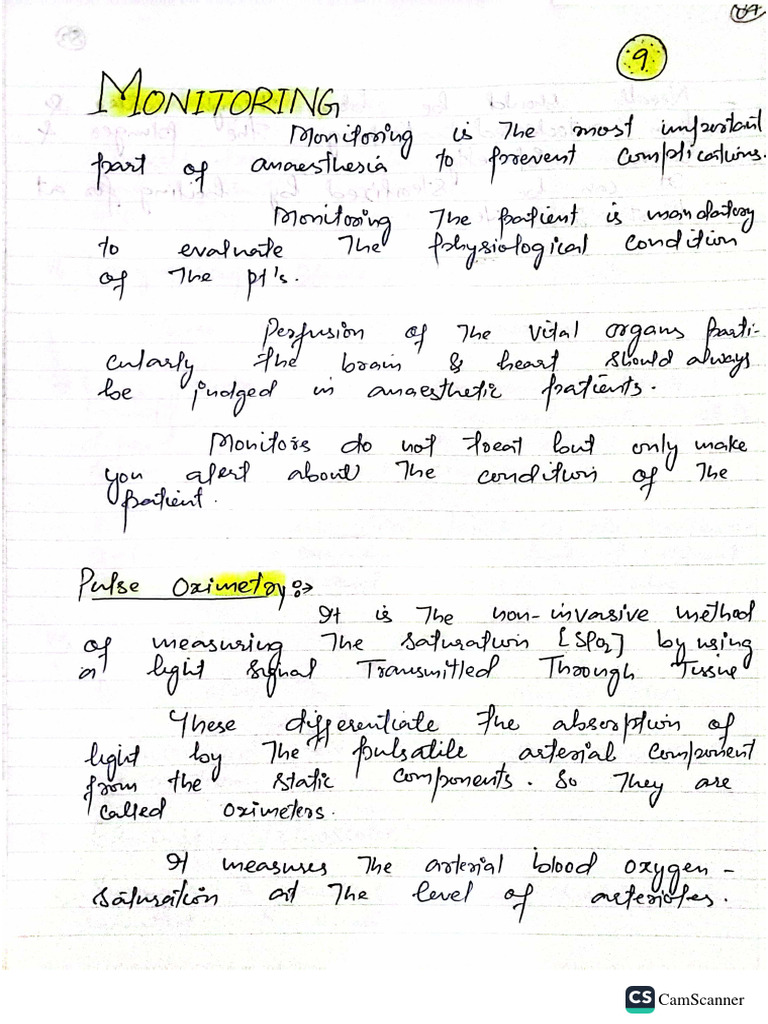 9
MONITORING
Monitoring is The most important
part of anaesthesia to prevent complications.
Monitoring The patient is mandatory
to evaluate The physiological condition
of The pt's.
Perfusion of The vital organs parti-
cularly the brain & heart should always
be judged in anaesthetic patients.
Monitors do not treat but only make
you alert about The condition of The
patient.
Pulse Oximetry :->
It is The non-invasive method
of measuring The saturation [SPO2] by using
a light signal Transmitted Through Tissue
These differentiate the absorption of
light by The pulsatile arterial component
from the static components. So They are
called oximeters.
It measures The arterial blood oxygen-
saturation at The level of arterioles.
CS CamScanner